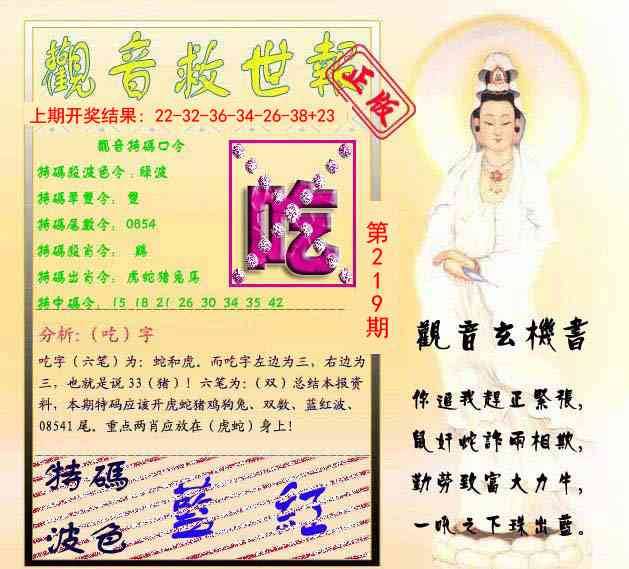 觀音救世報
正版
上期开奖结果：22-32-36-34-26-38+23
觀音特碼口令
特碼殺波色令：綠波
特碼單雙令： 雙
特碼尾數令： 0854
特碼殺肖令： 鷄
特碼出肖令： 虎蛇猪兔馬
特中碼令： 15 18 21 26 30 34 35 42
吃
第219期
分析：（吃）字
吃字（六笔）为：蛇和虎。而吃字左边为三，右边为
三，也就是说 33（猪）！六笔为：（双）总结本报资
料，本期特码应该开虎蛇猪鸡狗兔、双数、蓝红波、
08541 尾。重点两肖应放在（虎蛇）身上！
特碼
波色
藍 紅
觀音玄機書
你追我趕正緊張，
鼠奸蛇詐兩相欺，
勤勞致富大力牛，
一吼之下珠出藍。